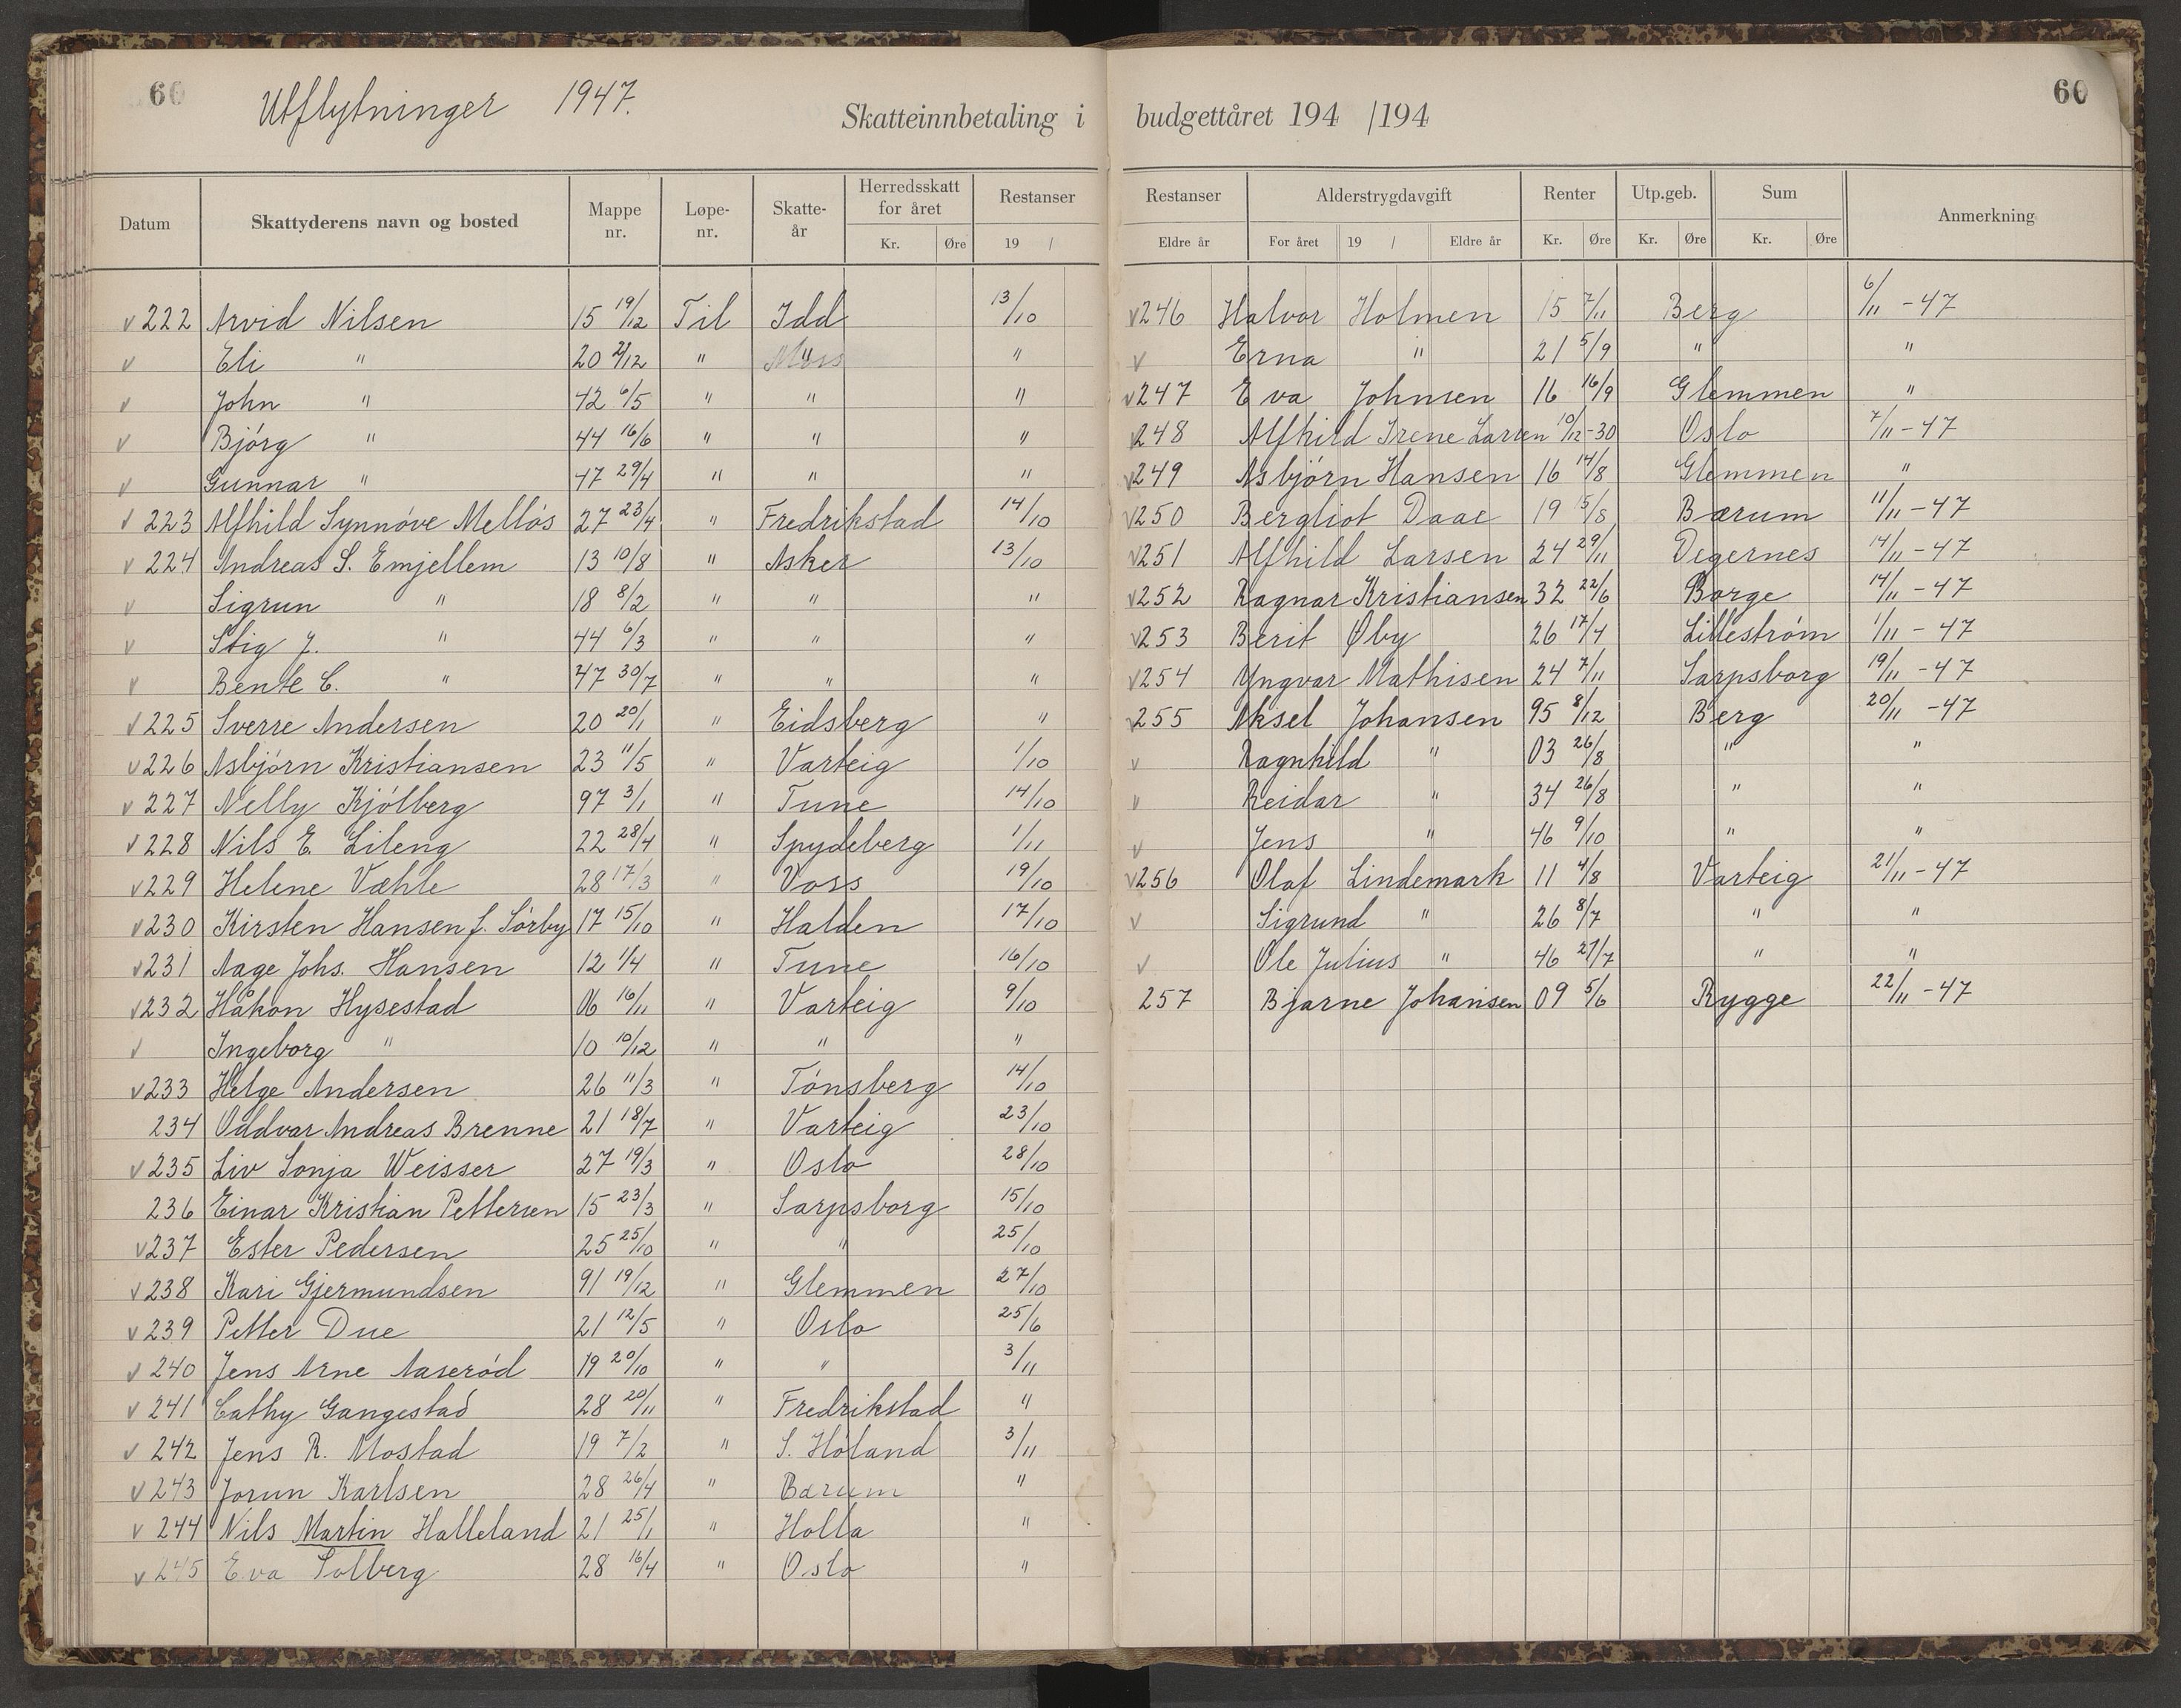 60
Utflytninger 1947.
Skatteinnbetaling i
Datum | Skattyderens navn og bosted | Mappe nr. | Løpe-nr. | Skatte-år | Herredsskatt for året Kr. Øre | Restanser 19 /
v 222 Arvid Nilsen 15 19/12 Til Idd 13/10
v Eli " 20 21/12 " " "
v John " 42 6/5 " " "
v Bjórg " 44 16/6 " " "
v Gunnar " 47 29/4 " " "
v 223 Alfhild Synnóve Mellós 27 23/4 " Fredrikstad 14/10
v 224 Andreas S. Emjellem 13 10/8 " Asker 13/10
v Sigrun " 18 8/2 " " "
v Stig J. " 44 6/3 " " "
v Bente C. " 47 30/7 " " "
v 225 Sverre Andersen 20 20/1 " Eidsberg "
v 226 Asbjórn Kristiansen 23 11/5 " Varteig 1/10
v 227 Nelly Kjólberg 97 3/1 " Tune 14/10
v 228 Nils E. Lileng 22 28/4 " Spydeberg 1/11
v 229 Helene Væhle 28 17/3 " Voss 19/10
v 230 Kirsten Hansen f. Sórby 17 15/10 " Halden 17/10
v 231 Aage Johs. Hansen 12 1/4 " Tune 16/10
v 232 Håkon Hysestad 06 16/11 " Varteig 9/10
v Ingeborg " 10 10/12 " " "
v 233 Helge Andersen 26 11/3 " Tónsberg 14/10
234 Oddvar Andreas Brenne 21 18/7 " Varteig 23/10
v 235 Liv Sonja Weisser 27 19/3 " Oslo 28/10
236 Einar Kristian Pettersen 15 23/3 " Sarpsborg 15/10
v 237 Ester Pedersen 25 25/10 " " 25/10
v 238 Kari Gjermundsen 91 19/12 " Glemmen 27/10
v 239 Petter Due 21 12/5 " Oslo 25/6
v 240 Jens Arne Aaseród 19 20/10 " " 3/11
v 241 Cathy Gangestad 28 20/11 " Fredrikstad "
v 242 Jens R. Mostad 19 7/2 " S. Hóland 3/11
v 243 Jorun Karlsen 28 26/4 " Bærum "
v 244 Nils Martin Halleland 21 25/1 " Holla "
v 245 Eva Solberg 28 16/4 " Oslo "
60
budgettåret 194 /194
Restanser Eldre år | Alderstrygdavgift For året 19 / Eldre år | Renter Kr. Øre | Utp.geb. Kr. Øre | Sum Kr. Øre | Anmerkning
v 246 Halvor Holmen 15 7/11 Berg 6/11 - 47
v Erna " 21 5/9 " "
v 247 Eva Johnsen 16 16/9 Glemmen "
v 248 Alfhild Irene Larsen 10/12-30 Oslo 7/11 - 47
v 249 Asbjórn Hansen 16 14/8 Glemmen "
v 250 Bergliot Daae 19 15/8 Bærum 11/11 - 47
v 251 Alfhild Larsen 24 29/11 Degernes 14/11 - 47
v 252 Ragnar Kristiansen 32 22/6 Borge 14/11 - 47
v 253 Berit Øby 26 17/4 Lillestróm 1/11 - 47
v 254 Yngvar Mathisen 24 7/11 Sarpsborg 19/11 - 47
v 255 Aksel Johansen 95 8/12 Berg 20/11 - 47
v Ragnhild " 03 26/8 " "
v Reidar " 34 26/8 " "
v Jens " 46 9/10 " "
v 256 Olaf Lindemark 11 4/8 Varteig 21/11 - 47
v Sigrund " 26 8/7 " "
v Ole Julius " 46 27/7 " "
257 Bjarne Johansen 09 5/6 Rygge 22/11 - 47